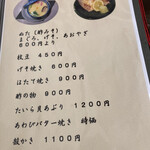 ぬた（酢みそ）
まぐろ、げそ、あおやぎ
800円より
枝豆 450円
げそ焼き 600円
はたて焼き 900円
酢の物 900円
たいら貝あぶり 1200円
あわびバター焼き 時価
殻かき 1100円